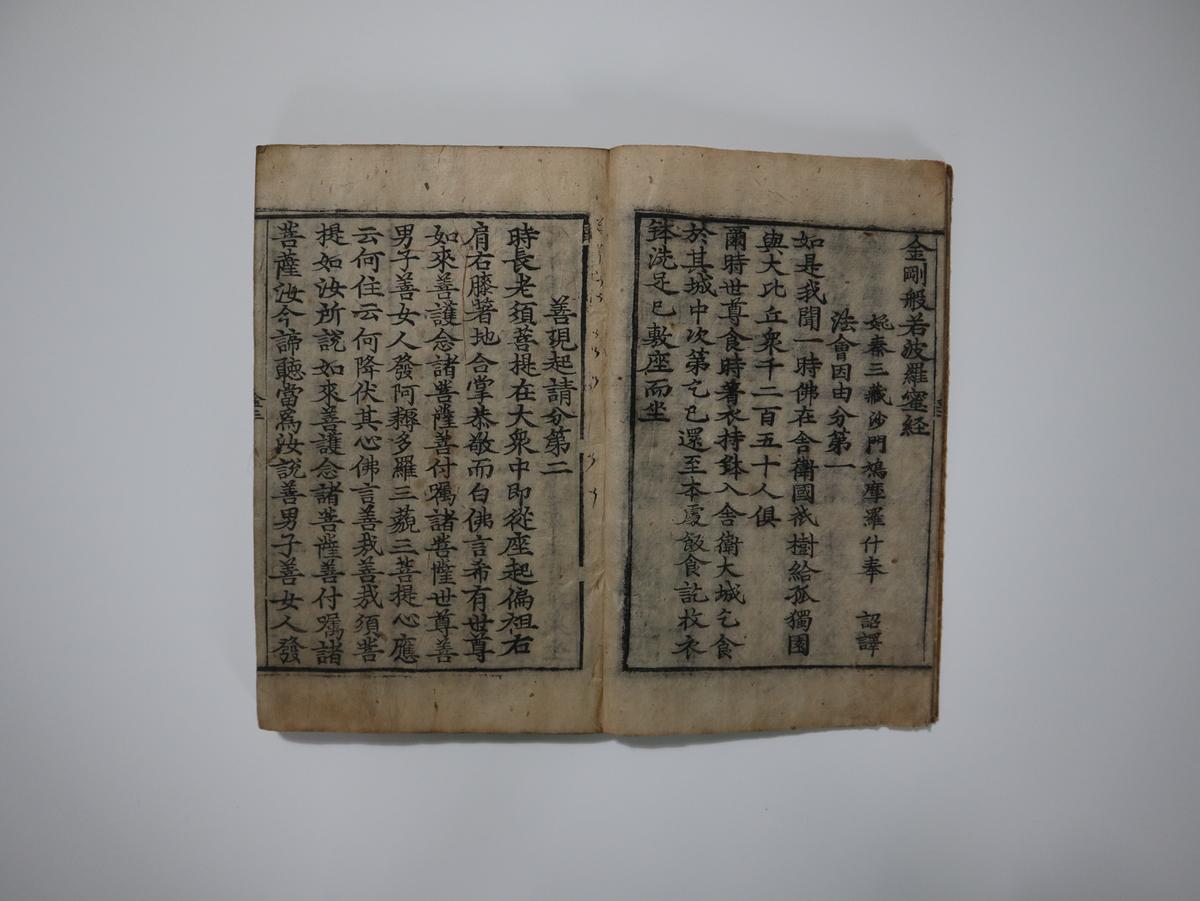 金剛般若波羅蜜經
姚秦三藏沙門鳩摩羅什奉　詔譯
法會因由分第一
如是我聞一時佛在舍衛國祇樹給孤獨園
與大比丘衆千二百五十人俱
爾時世尊食時著衣持鉢入舍衛大城乞食
於其城中次第乞已還至本處飯食訖收衣
鉢洗足已敷座而坐
善現起請分第二
時長老須菩提在大衆中即從座起偏袒右
肩右膝著地合掌恭敬而白佛言希有世尊
如來善護念諸菩薩善付囑諸菩薩世尊善
男子善女人發阿耨多羅三藐三菩提心應
云何住云何降伏其心佛言善哉善哉須菩
提如汝所說如來善護念諸菩薩善付囑諸
菩薩汝今諦聽當爲汝說善男子善女人發